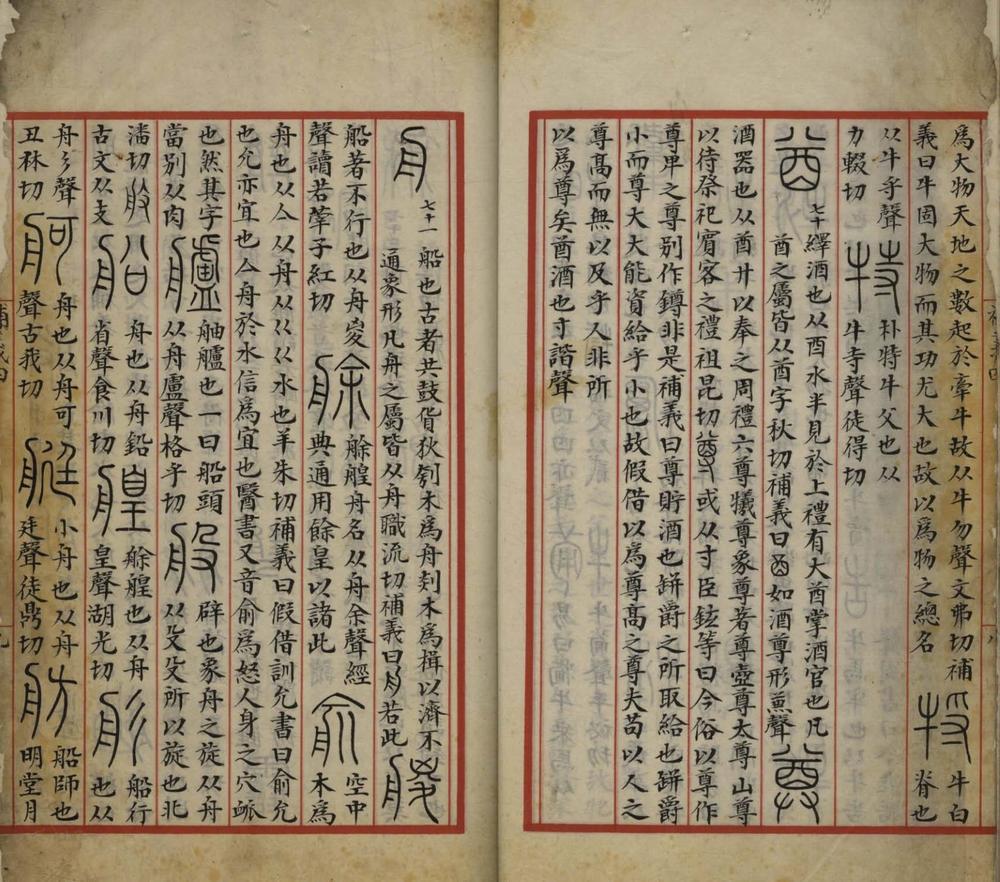 爲大物天地之數起於牽牛故从牛勿聲文弗切補㸹牛白
義曰牛固大物而其功尤大也故以爲物之總名脊也
从牛寽聲特朴特牛父也从
力輟切牛寺聲徒得切
酋七十繹酒也从酉水半見於上禮有大酋掌酒官也凡
酋之屬皆从酋字秋切補義曰酉如酒尊形兼聲尊
酒器也从酋廾以奉之周禮六尊犧尊象尊著尊壺尊太尊山尊
以待祭祀賔客之禮祖昆切尊或从寸臣鉉等曰今俗以尊作
尊卑之尊别作罇非是補義曰尊貯酒也缾爵之所取給也缾爵
小而尊大大能資給乎小也故假借以爲尊髙之尊夫苟以人之
尊髙而無以及乎人非所
以爲尊矣酋酒也寸諧聲
舟七十一船也古者共鼓貨狄刳木爲舟剡木爲楫以濟不
通象形凡舟之屬皆从舟職流切補義曰舟若此艐
船著不行也从舟㚇艅艅艎舟名从舟余聲經俞空中
聲讀若莘子紅切典通用餘皇以諸此木爲
舟也从亼从舟从巜巜水也羊朱切補義曰假借訓允書曰俞允
也允亦宜也亼舟於水信爲宜也醫書又音俞爲恕人身之穴䘑
也然其字艫舳艫也一曰船頭般辟也象舟之旋从舟
當别从肉从舟盧聲格乎切从殳殳所以旋也北
潘切船舟也从舟鉛艎艅艎也从舟彤船行
古文从支省聲食川切皇聲湖光切也从
舟彡聲舸舟也从舟可艇小舟也从舟舫船師也
丑林切聲古我切廷聲徒鼎切明堂月